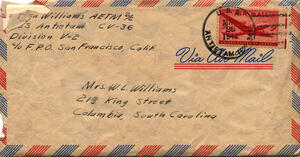 Williams AETM 3/c
USS Antietam CV-36
Division V-2
c/o F.P.O. San Francisco, Calif.
U.S. AIR MAIL
ANTIETAM
Via Air Mail
Mrs. W. L. Williams
218 King Street
Columbia, South Carolina